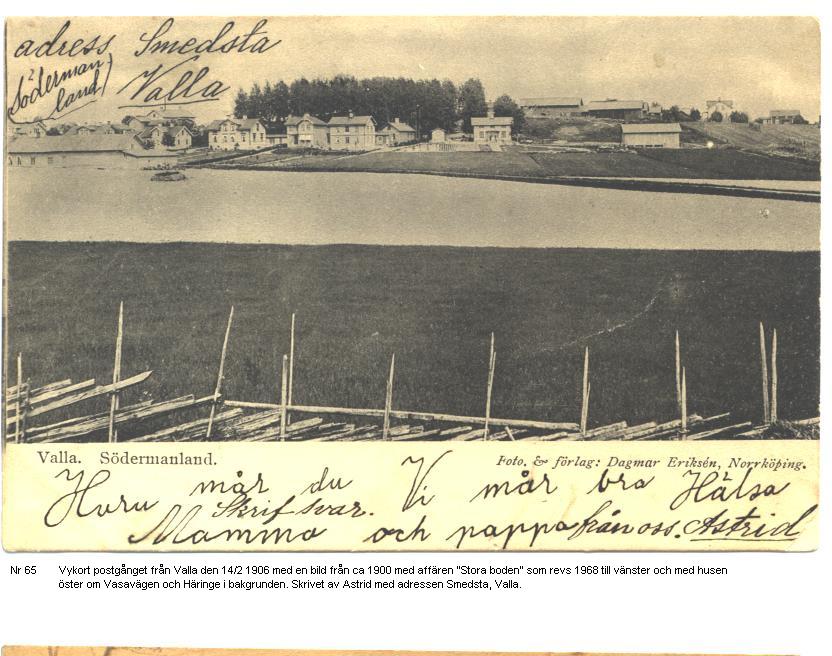 adress Smedsta
Söderman
land) Valla
Valla. Södermanland.
Foto. & förlag: Dagmar Eriksén, Norrköping.
Huru mår du Vi mår bra Hälsa
Skrif svar.
Mamma och pappa från oss. Astrid
Nr 65 Vykort postgånget från Valla den 14/2 1906 med en bild från ca 1900 med affären "Stora boden" som revs 1968 till vänster och med husen
öster om Vasavägen och Häringe i bakgrunden. Skrivet av Astrid med adressen Smedsta, Valla.